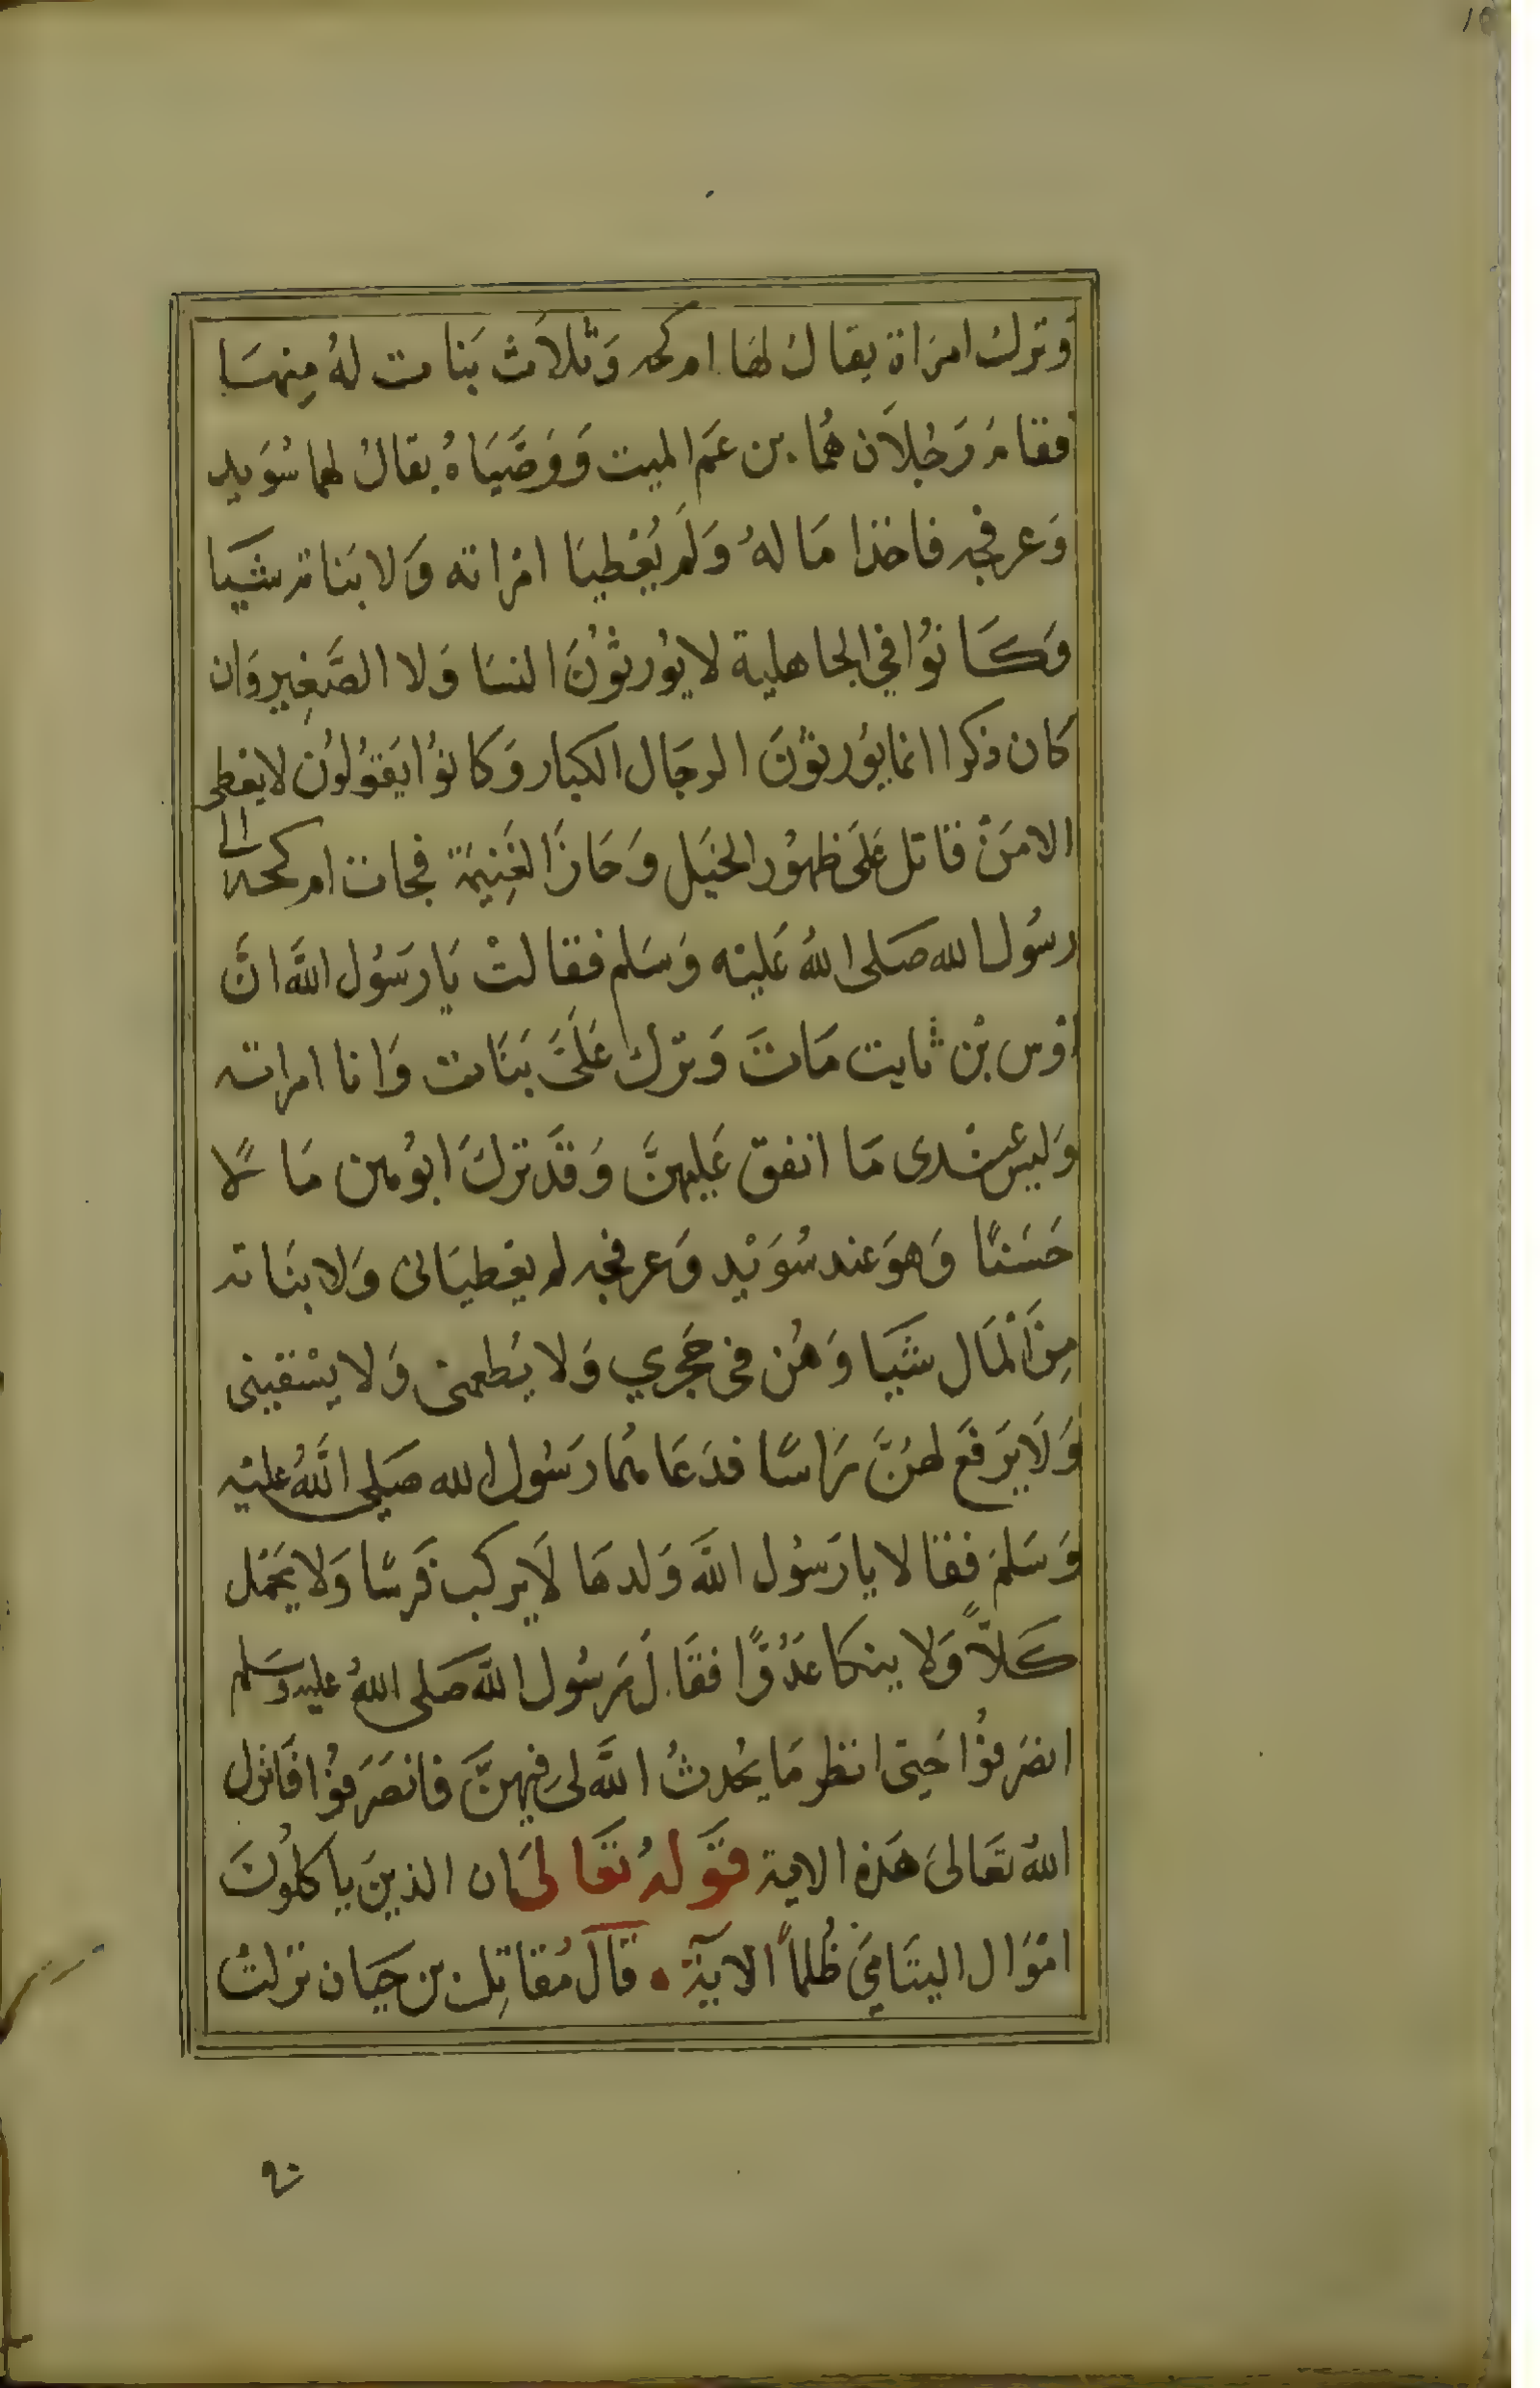 وترك امرَاة يقال لهَا ام كحه وَثلاَث بَنات لهُ مِنهَا
فقامَ رَجُلاَن هُمَا بن عَم الميت وَوَصَّيَاهُ يقالُ لهما سُوَيد
وَعرفجه فاخذا مَا لهُ وَلَم يُعْطيَا امْراته وَلا بَناته شَيا
وَكَانوُا في الجاهلية لا يوُرثوُنَ النسَا وَلا الصَّغِير وَان
كان ذكرا انما يوُرثوُنَ الرجَال الكبار وَكانوُا يَقوُلوُن لا يعطى
الا مَنْ قاتل عَلىَ ظهوُر الخيَل وَحَازَ الغَنِيمَة فجات ام كحه الى
رسُول الله صَلى اللهُ عَليْه وَسَلم فقالتْ يَا رَسُول اللَّه انَّ
اوْس بْن ثابت مَاتَ وَترك عَلَىَّ بَنَات وَانا امراته
وَليس عنْدى مَا انفق عَليهنَّ وَقَد تركَ ابوُهن مَالاً
حَسَنًا وَهوَ عند سُوَيْد وَعرفجه لم يعْطيَانى وَلا بنَاته
مِنَ الْمَال شَيَا وَهُن فى حَجْري وَلا يُطعمنى وَلا يسْقينى
وَلاَ يَرفَع لهُنَّ رَاسًا فدَعَاهُمَا رَسُول الله صَلى اللَّهُ عليْه
وَسَلمَ فقالا يا رَسُول اللَّه وَلدهَا لاَ يركب فَرسًا وَلا يَحْمل
كَلاًّ وَلا ينكا عَدُوًّا فقَالَ رَسُول اللَّه صَلى اللهُ عليه وسَلم
انصَرفوُا حَتى انظر مَا يحُدثُ اللَّه لىِ فيهنَّ فانصَرَفوُا فَانزل
اللهُ تعَالىَ هَذه الاية قوَلهُ تعَالىَ ان الذينَ ياكلوُنَ
امْوَال اليتَامَى ظُلماً الايَة • قالَ مُقاتِل بن حَيان نزلتْ